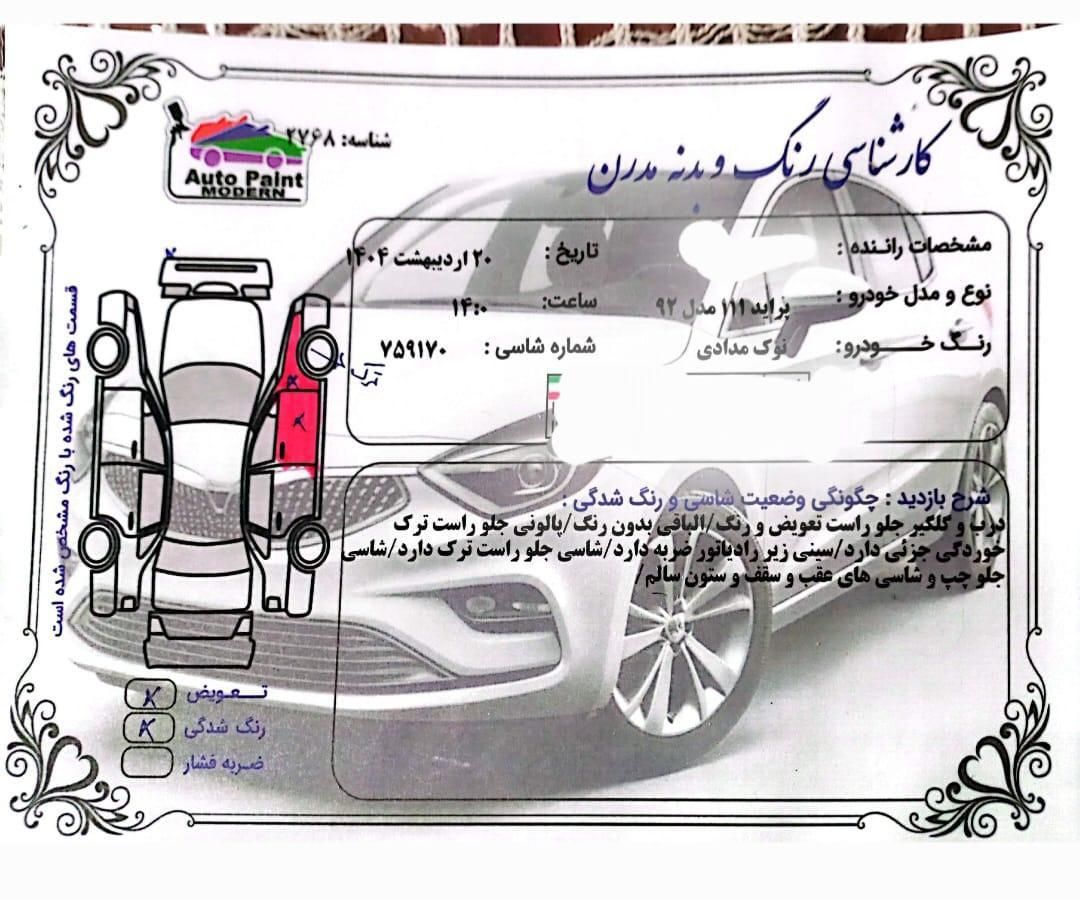 کارشناسی رنگ و بدنه مدرن
شناسه: ۲۷۶۸
Auto Paint
MODERN
مشخصات راننده :
تاریخ : ۲۰ اردیبهشت ۱۴۰۴
نوع و مدل خودرو : پراید ۱۱۱ مدل ۹۲
ساعت: ۱۴:۰
رنگ خودرو: نوک مدادی
شماره شاسی : ۷۵۹۱۷۰
قسمت های رنگ شده با رنگ مشخص شده است
شرح بازدید : چگونگی وضعیت شاسی و رنگ شدگی :
درب و گلگیر جلو راست تعویض و رنگ/الباقی بدون رنگ/پالونی جلو راست ترک
خوردگی جزئی دارد/سینی زیر رادیاتور ضربه دارد/شاسی جلو راست ترک دارد/شاسی
جلو چپ و شاسی های عقب و سقف و ستون سالم/
تعویض
رنگ شدگی
ضربه فشار